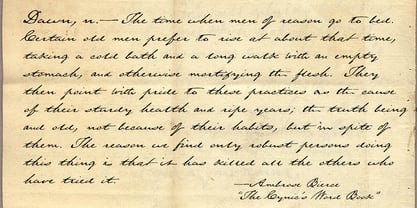 Dawn, n.— The time when men of reason go to bed.
Certain old men prefer to rise at about that time,
taking a cold bath and a long walk with an empty
stomach, and otherwise mortifying the flesh. They
then point with pride to these practices as the cause
of their sturdy health and ripe years; the truth being
and old, not because of their habits, but in spite of
them. The reason we find only robust persons doing
this thing is that it has killed all the others who
have tried it.
—Ambrose Bierce
"The Cynic's Word Book"